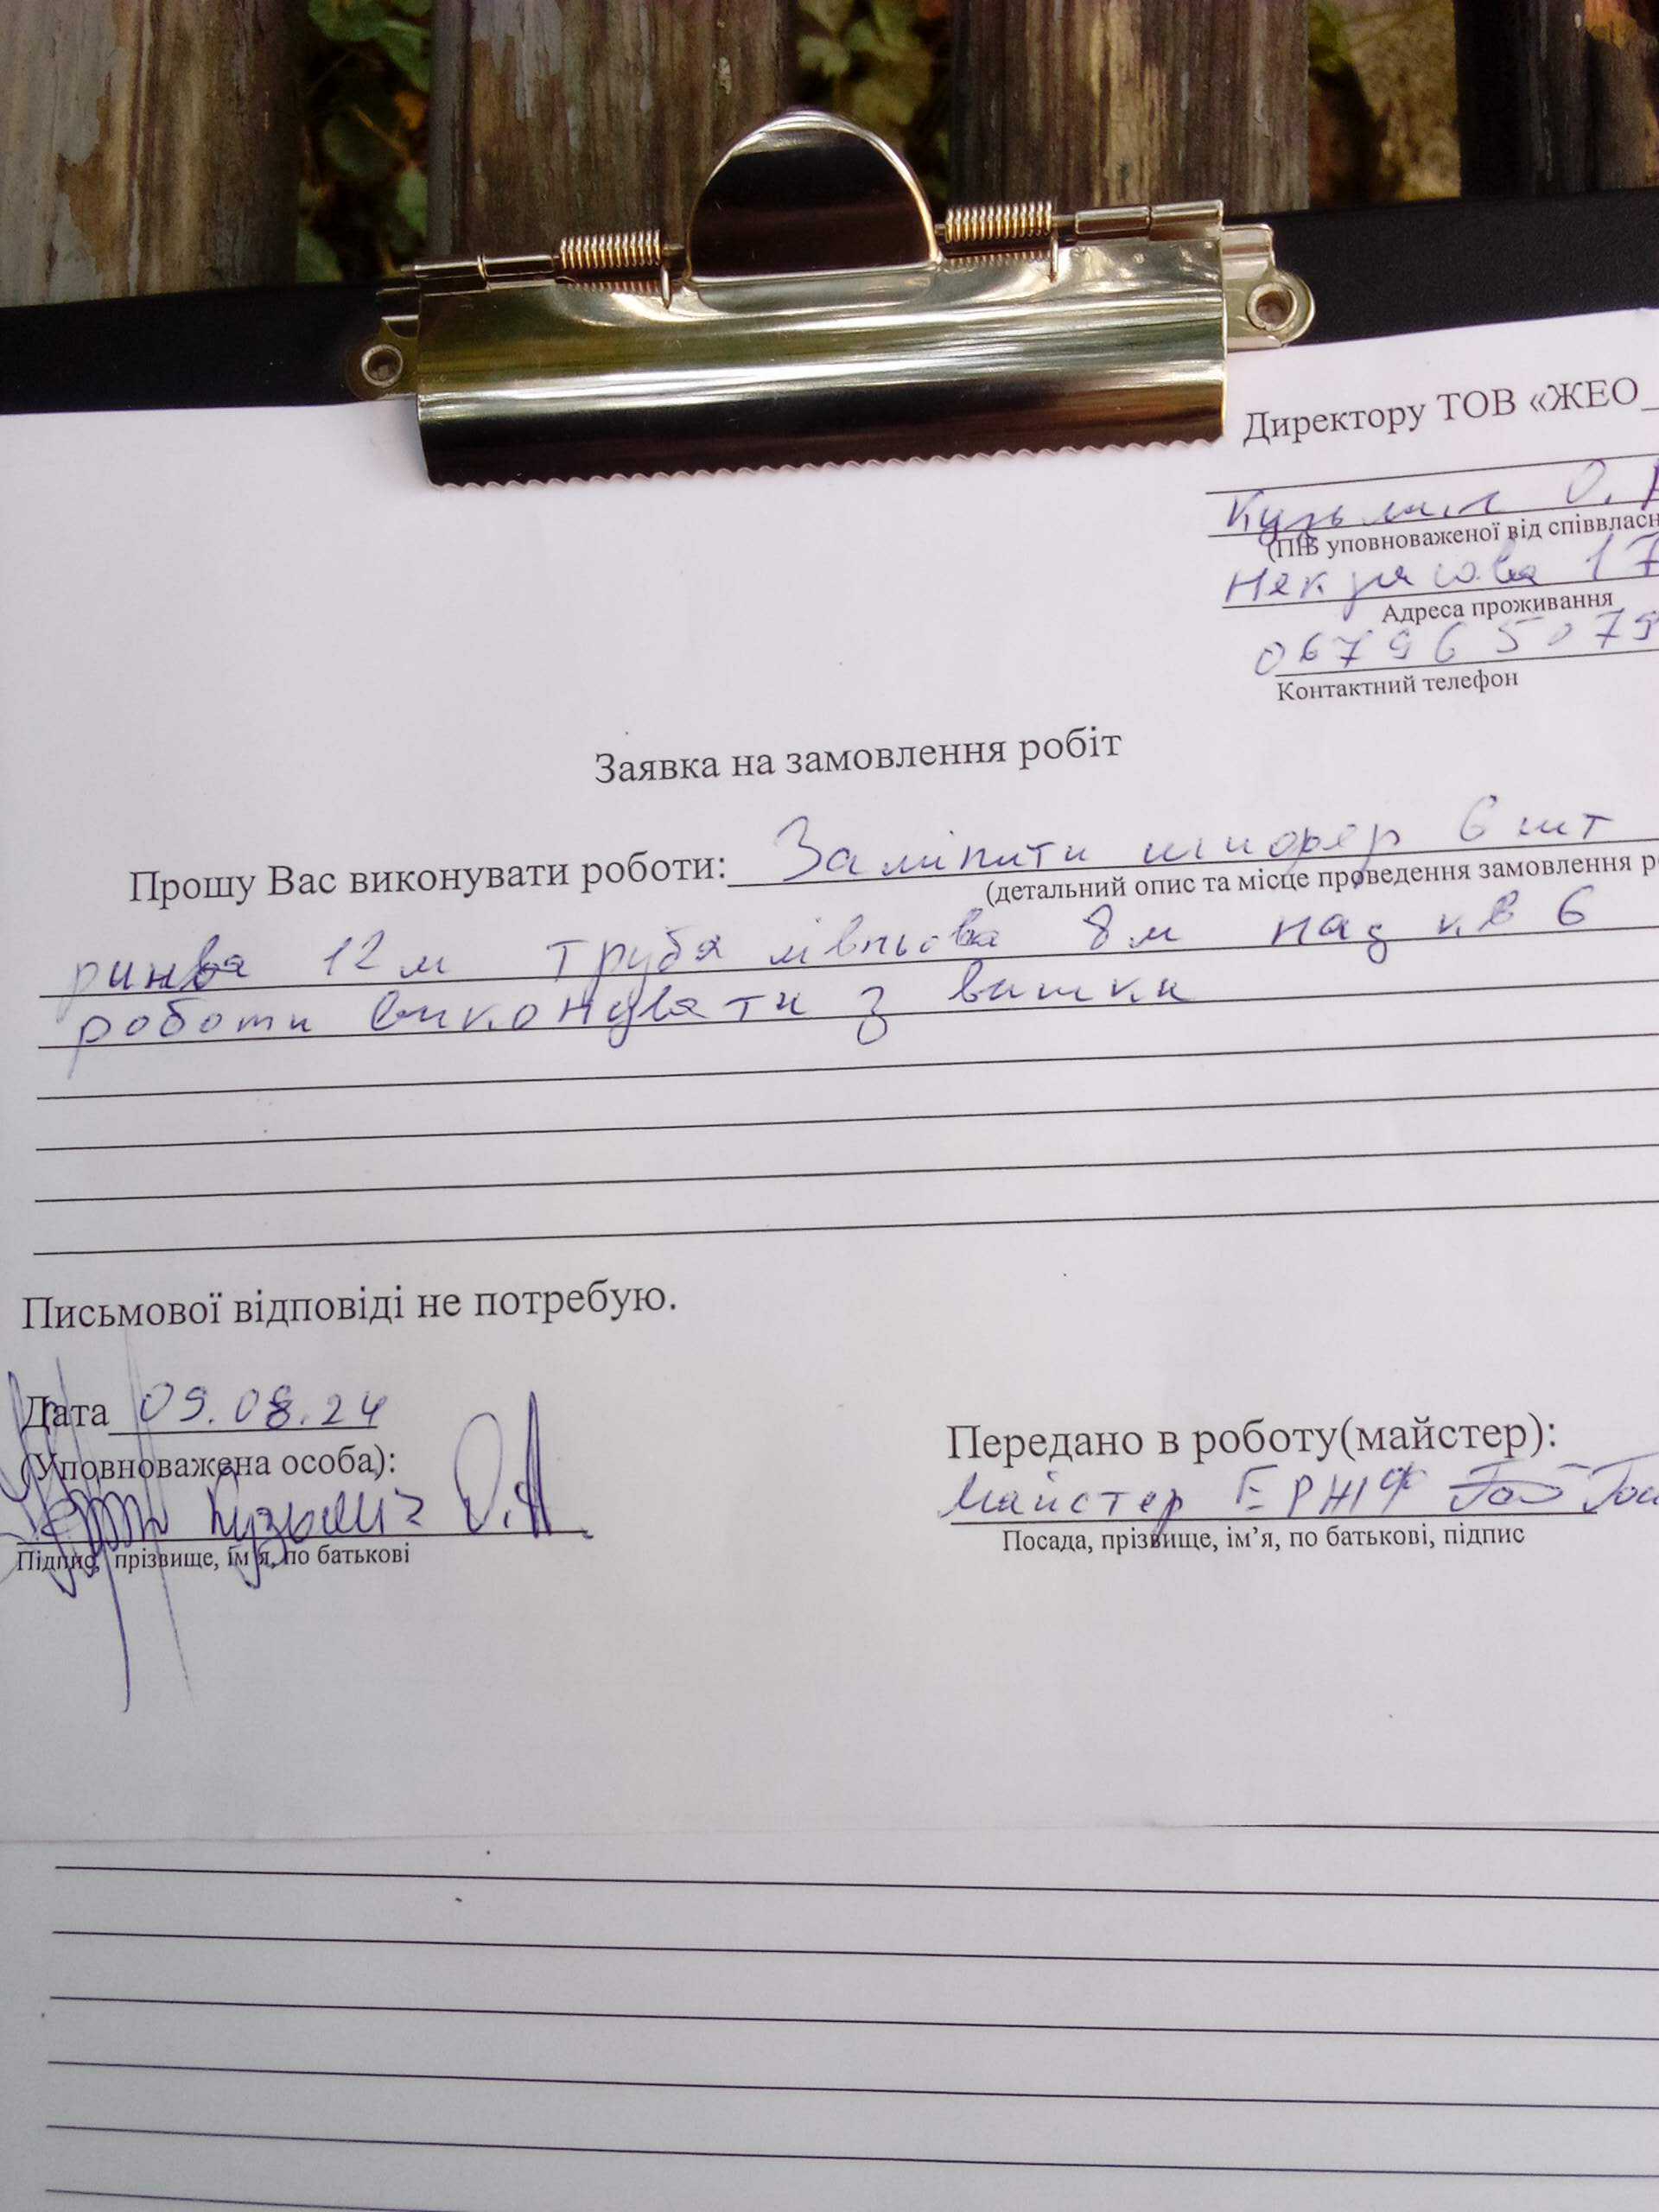 Директору ТОВ «ЖЕО_
Кузьмич О.
(ПІБ уповноваженої від співвласн
Некрасова 17
Адреса проживання
067965079
Контактний телефон
Заявка на замовлення робіт
Прошу Вас виконувати роботи: Замінити шифер 6 шт
(детальний опис та місце проведення замовлення р
ринва 12 м труба лівньова 8 м над кв 6
роботи виконувати з вишки
Письмової відповіді не потребую.
Дата 09.08.24
(Уповноважена особа):
Передано в роботу(майстер):
Кузьмич О.А
Майстер ЕРЖФ
Підпис, прізвище, ім'я, по батькові
Посада, прізвище, ім’я, по батькові, підпис